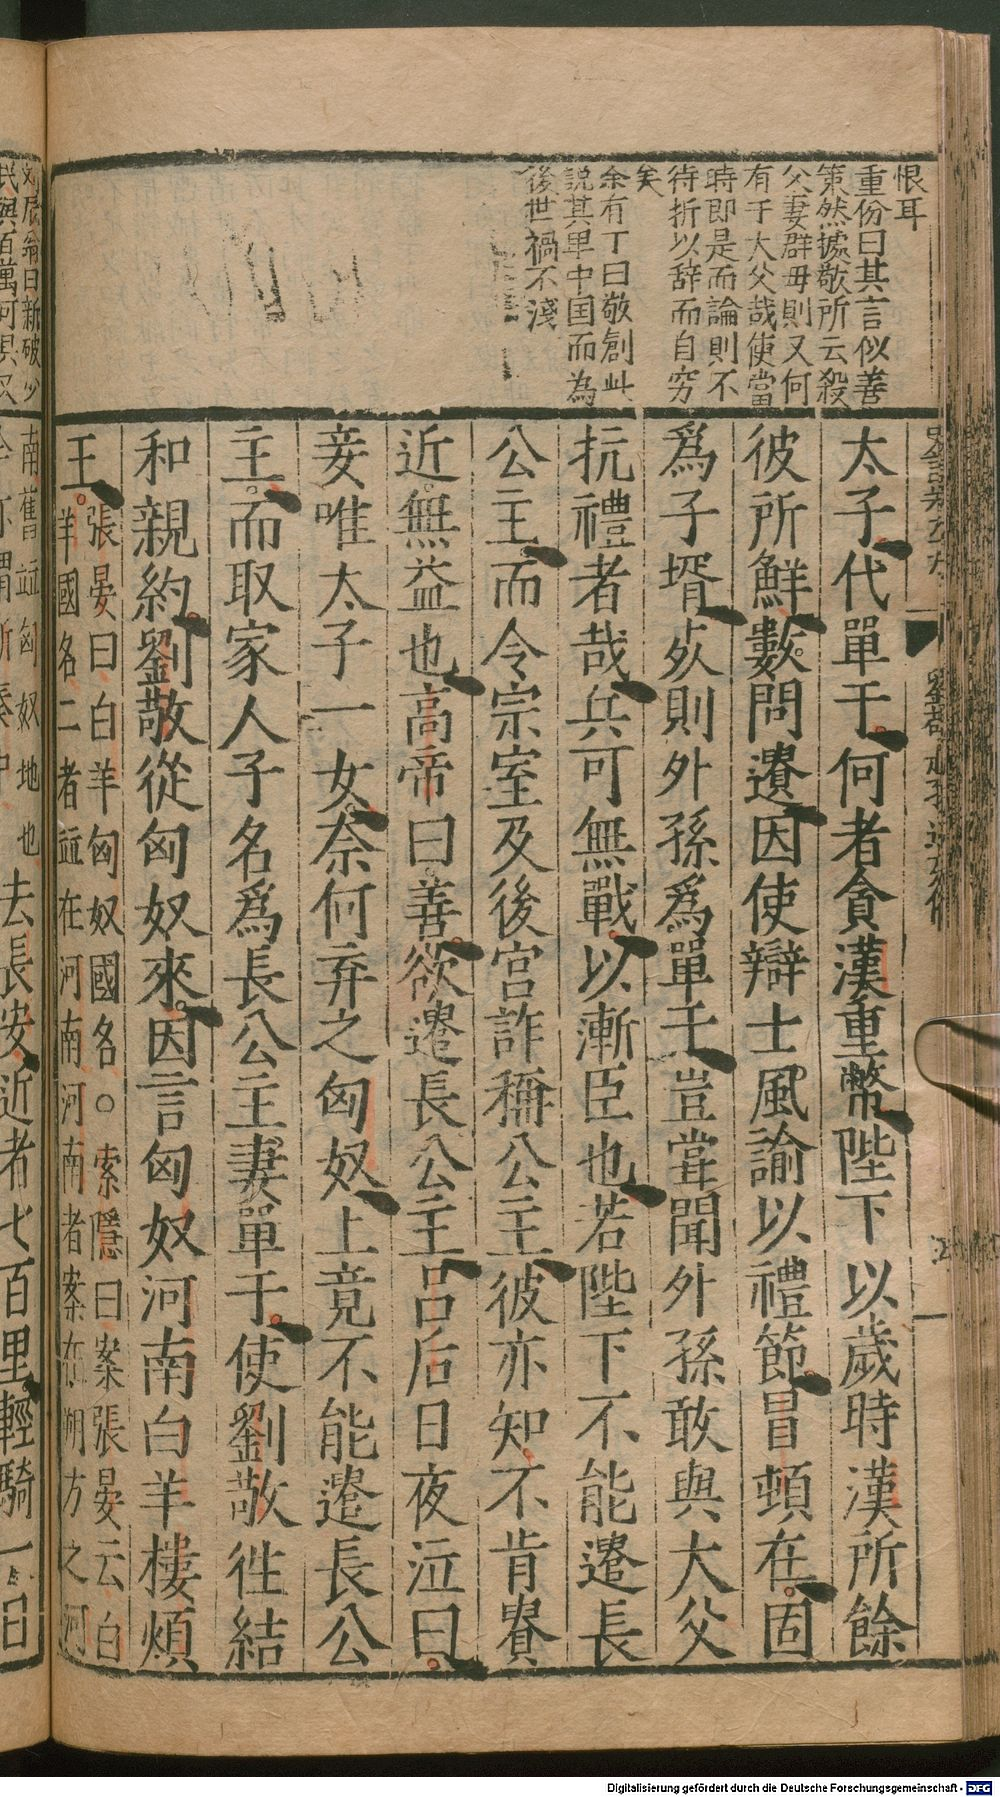 恨耳
重份曰其言似善
策然據敬所云殺
父妻群母則又何
有于大父哉使當
時即是而論則不
待折以辞而自窮
矣
余有丁曰敬創此
説其卑中国而為
後世禍不淺
太子代單于何者貪漢重幣陛下以歲時漢所餘
彼所鮮數問遺因使辯士風諭以禮節冒頓在固
爲子壻死則外孫爲單于豈嘗聞外孫敢與大父
抗禮者哉兵可無戰以漸臣也若陛下不能遣長
公主而令宗室及後宮詐稱公主彼亦知不肯貴
近無益也高帝曰善欲遣長公主吕后日夜泣曰
妾唯太子一女奈何弃之匈奴上竟不能遣長公
主而取家人子名爲長公主妻單于使劉敬徃結
和親約劉敬從匈奴來因言匈奴河南白羊樓煩
王張晏曰白羊匈奴國名○索隱曰案張晏云白
羊國名二者並在河南河南者案在朔方之河
南舊並匈奴地也去長安近者七百里輕騎一日
Digitalisierung gefördert durch die Deutsche Forschungsgemeinschaft - DFG